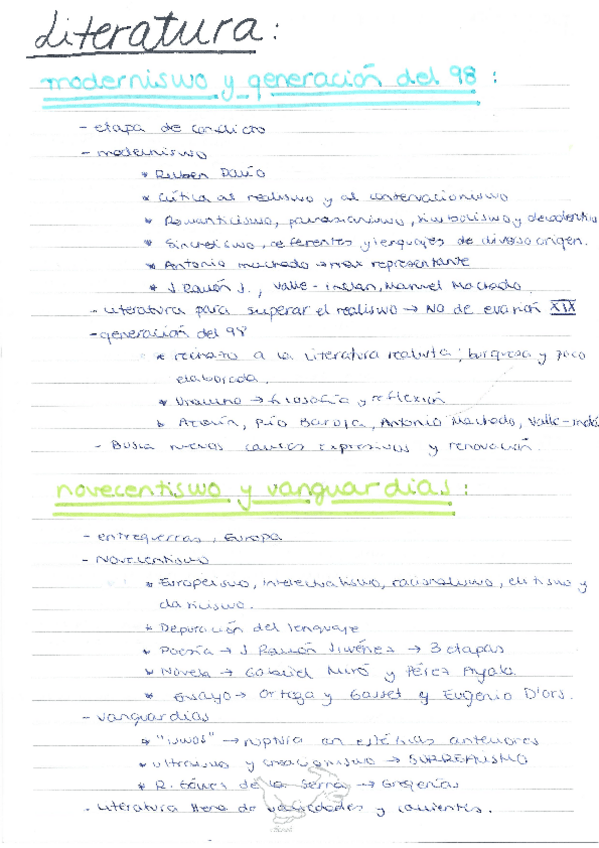 Literatura:
modernismo y generación del 98:
- etapa de conflicto
- modernismo
* Rubén Darío
* Crítica al realismo y al conservacionismo
* Romanticismo, parnasianismo, simbolismo y decadentis
* Sincretismo, referentes y lenguajes de diverso origen.
* Antonio machado → max representante
* J Ramón J., Valle-inclan, Manuel Machado.
- Literatura para superar el realismo → NO de evasión XIX
- generación del 98
* rechazo a la literatura realista; burguesa y poco
elaborada.
* Unamuno → filosofía y reflexión
* Azorín, Pío Baroja, Antonio Machado, Valle-
- Busca nuevos cauces expresivos y renovación.
novecentismo y vanguardias:
- entreguerras, Europa
- Novecentismo
* Europeismo, intelectualismo, racionalismo, elitismo y
clasicismo.
* Depuración del lenguaje
* Poesía → J Ramón Jiménez → 3 etapas
* Novela → Gabriel Miró y Pérez Ayala.
* Ensayo → Ortega y Gasset y Eugenio D'ors.
- vanguardias
* "ismos" → ruptura con estéticas anteriores
* ultraismo y creacionismo → SURREALISMO
* R. Gómez de la Serna → Greguerías
- Literatura llena de variedades y corrientes.